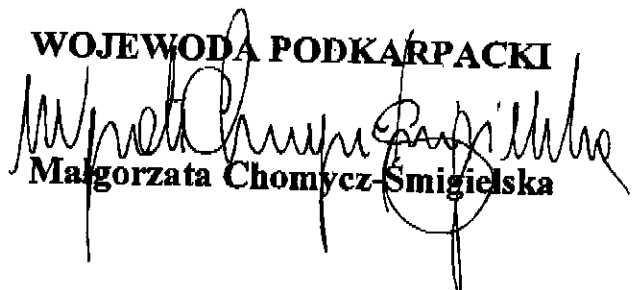 WOJEWODA PODKARPACKI
Małgorzata Chomycz-Śmigielska